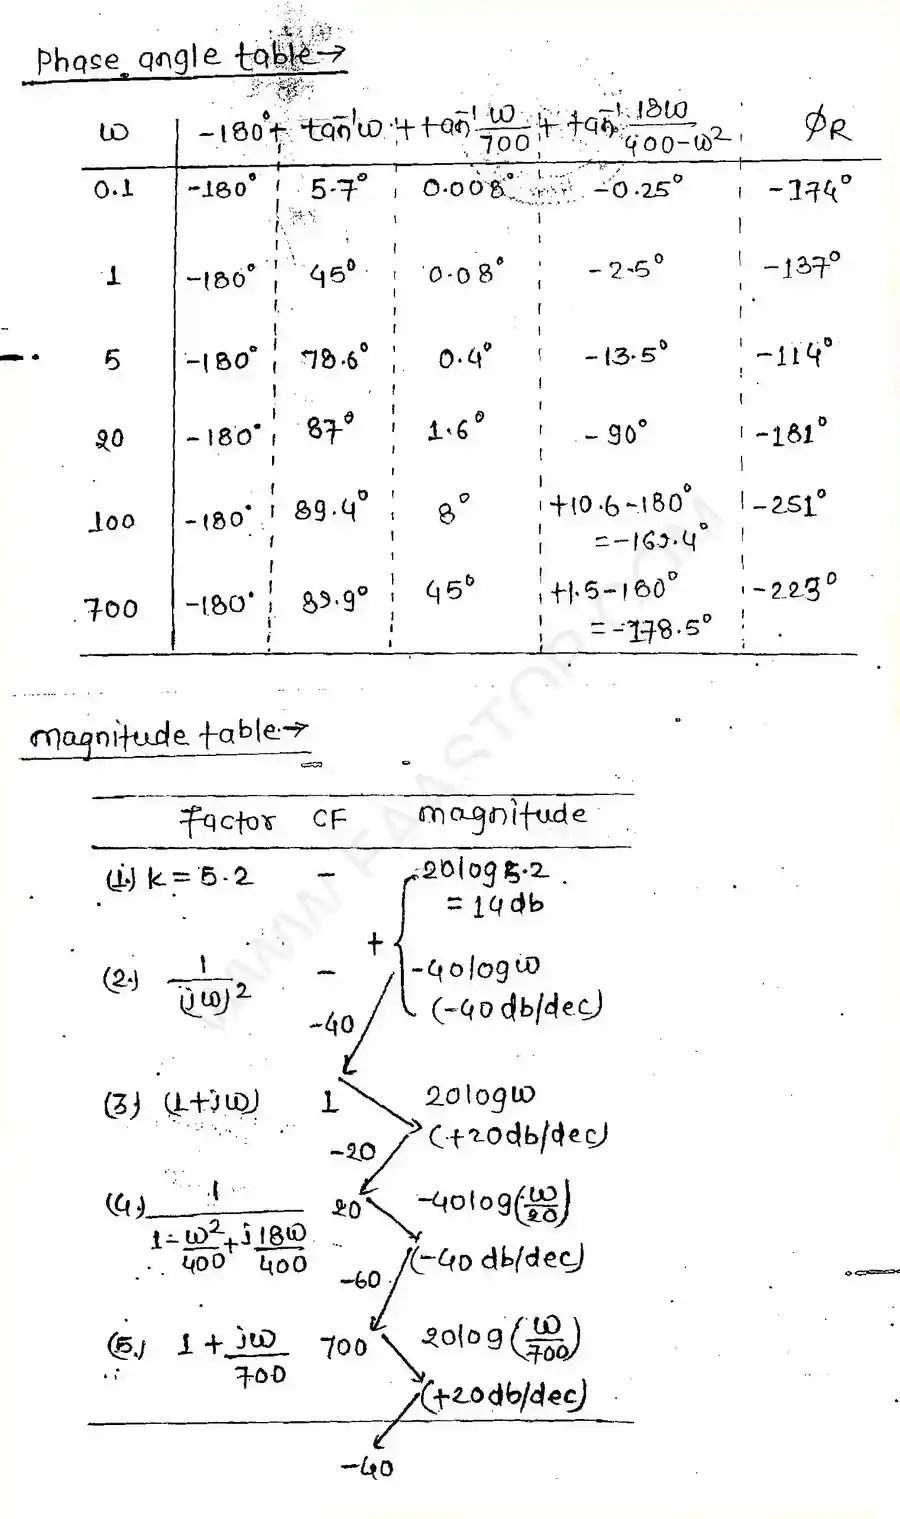 Phase angle table →
ω | -180° + tan⁻¹ω + tan⁻¹ ω/700 + tan⁻¹ 18ω/400-ω² | ØR
0.1 | -180° | 5.7° | 0.008° | -0.25° | -174°
1 | -180° | 45° | 0.08° | -2.5° | -137°
5 | -180° | 78.6° | 0.4° | -13.5° | -114°
20 | -180° | 87° | 1.6° | -90° | -181°
100 | -180° | 89.4° | 8° | +10.6-180° | -251°
= -169.4°
700 | -180° | 89.9° | 45° | +1.5-180° | -223°
= -178.5°
magnitude table →
Factor CF magnitude
(1.) k = 5.2 - 20log5.2
= 14db
+
(2.) 1/(jω)² - -40logω
(-40db/dec)
-40
(3) (1+jω) 1 20logω
(+20db/dec)
-20
(4.) 1/(1-ω²/400+j18ω/400) 20 -40log(ω/20)
(-40 db/dec)
-60
(5.) 1+jω/700 700 20log(ω/700)
(+20db/dec)
-40